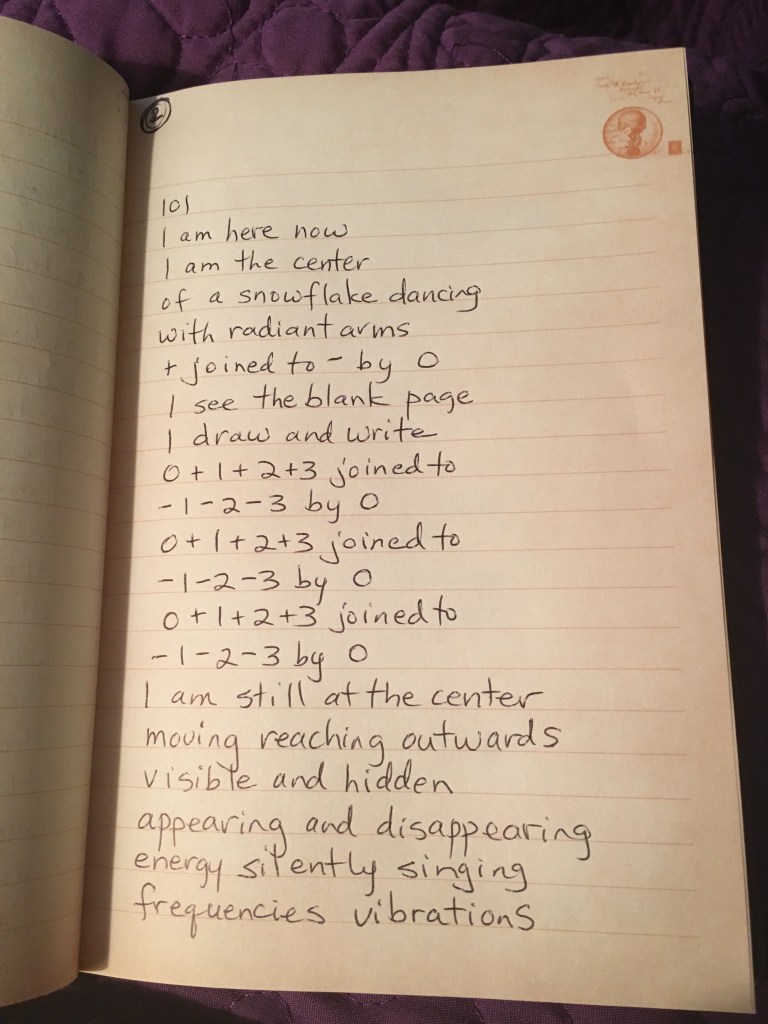 2
101
I am here now
I am the center
of a snowflake dancing
with radiant arms
+ joined to - by 0
I see the blank page
I draw and write
0+1+2+3 joined to
-1-2-3 by 0
0+1+2+3 joined to
-1-2-3 by 0
0+1+2+3 joined to
-1-2-3 by 0
I am still at the center
moving reaching outwards
visible and hidden
appearing and disappearing
energy silently singing
frequencies vibrations